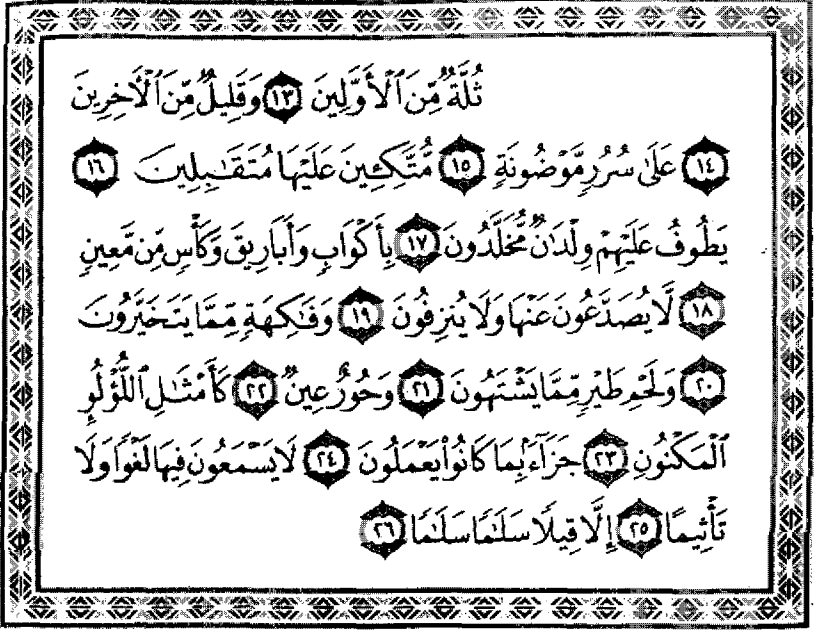 ثُلَّةٌ مِّنَ ٱلْأَوَّلِينَ ١٣ وَقَلِيلٌ مِّنَ ٱلْآخِرِينَ
١٤ عَلَىٰ سُرُرٍ مَّوْضُونَةٍ ١٥ مُّتَّكِـِٔينَ عَلَيْهَا مُتَقَـٰبِلِينَ ١٦
يَطُوفُ عَلَيْهِمْ وِلْدَٰنٌ مُّخَلَّدُونَ ١٧ بِأَكْوَابٍ وَأَبَارِيقَ وَكَأْسٍ مِّن مَّعِينٍ
١٨ لَّا يُصَدَّعُونَ عَنْهَا وَلَا يُنزِفُونَ ١٩ وَفَـٰكِهَةٍ مِّمَّا يَتَخَيَّرُونَ
٢٠ وَلَحْمِ طَيْرٍ مِّمَّا يَشْتَهُونَ ٢١ وَحُورٌ عِينٌ ٢٢ كَأَمْثَـٰلِ ٱللُّؤْلُؤِ
ٱلْمَكْنُونِ ٢٣ جَزَآءًۢ بِمَا كَانُوا۟ يَعْمَلُونَ ٢٤ لَا يَسْمَعُونَ فِيهَا لَغْوًا وَلَا
تَأْثِيمًا ٢٥ إِلَّا قِيلًا سَلَـٰمًا سَلَـٰمًا ٢٦